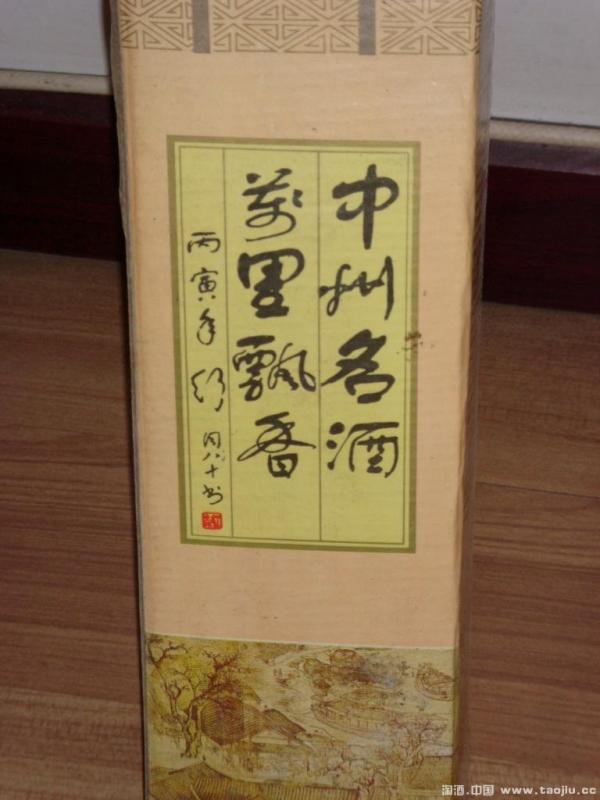 中州名酒
萬里飄香
丙寅年
八十书
淘酒.中国 www.taojiu.cc